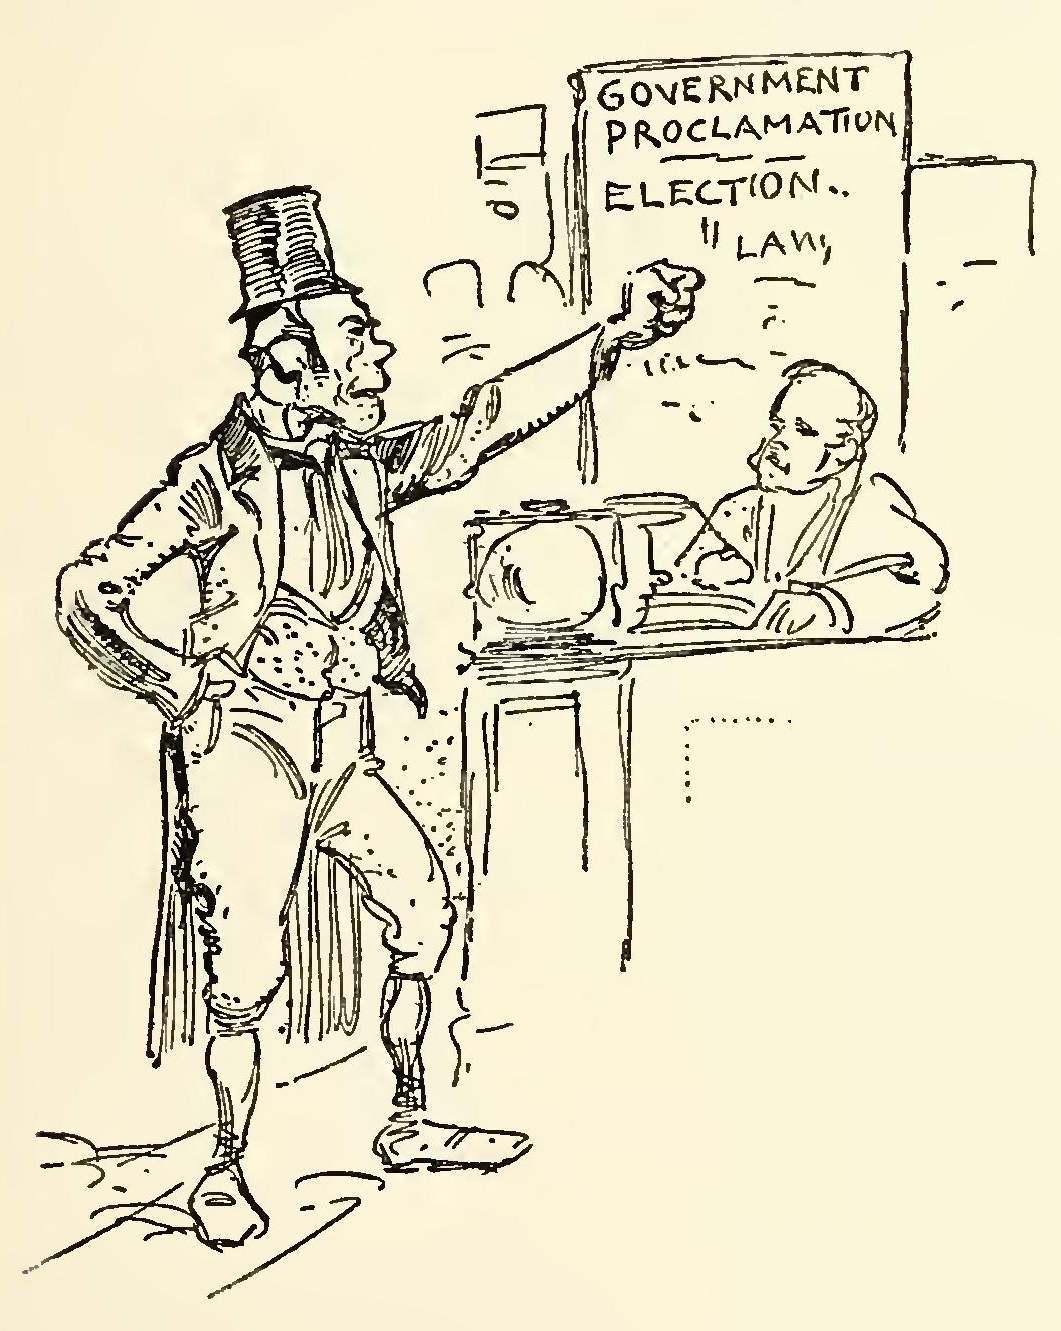 GOVERNMENT
PROCLAMATION
ELECTION..
" LAW,